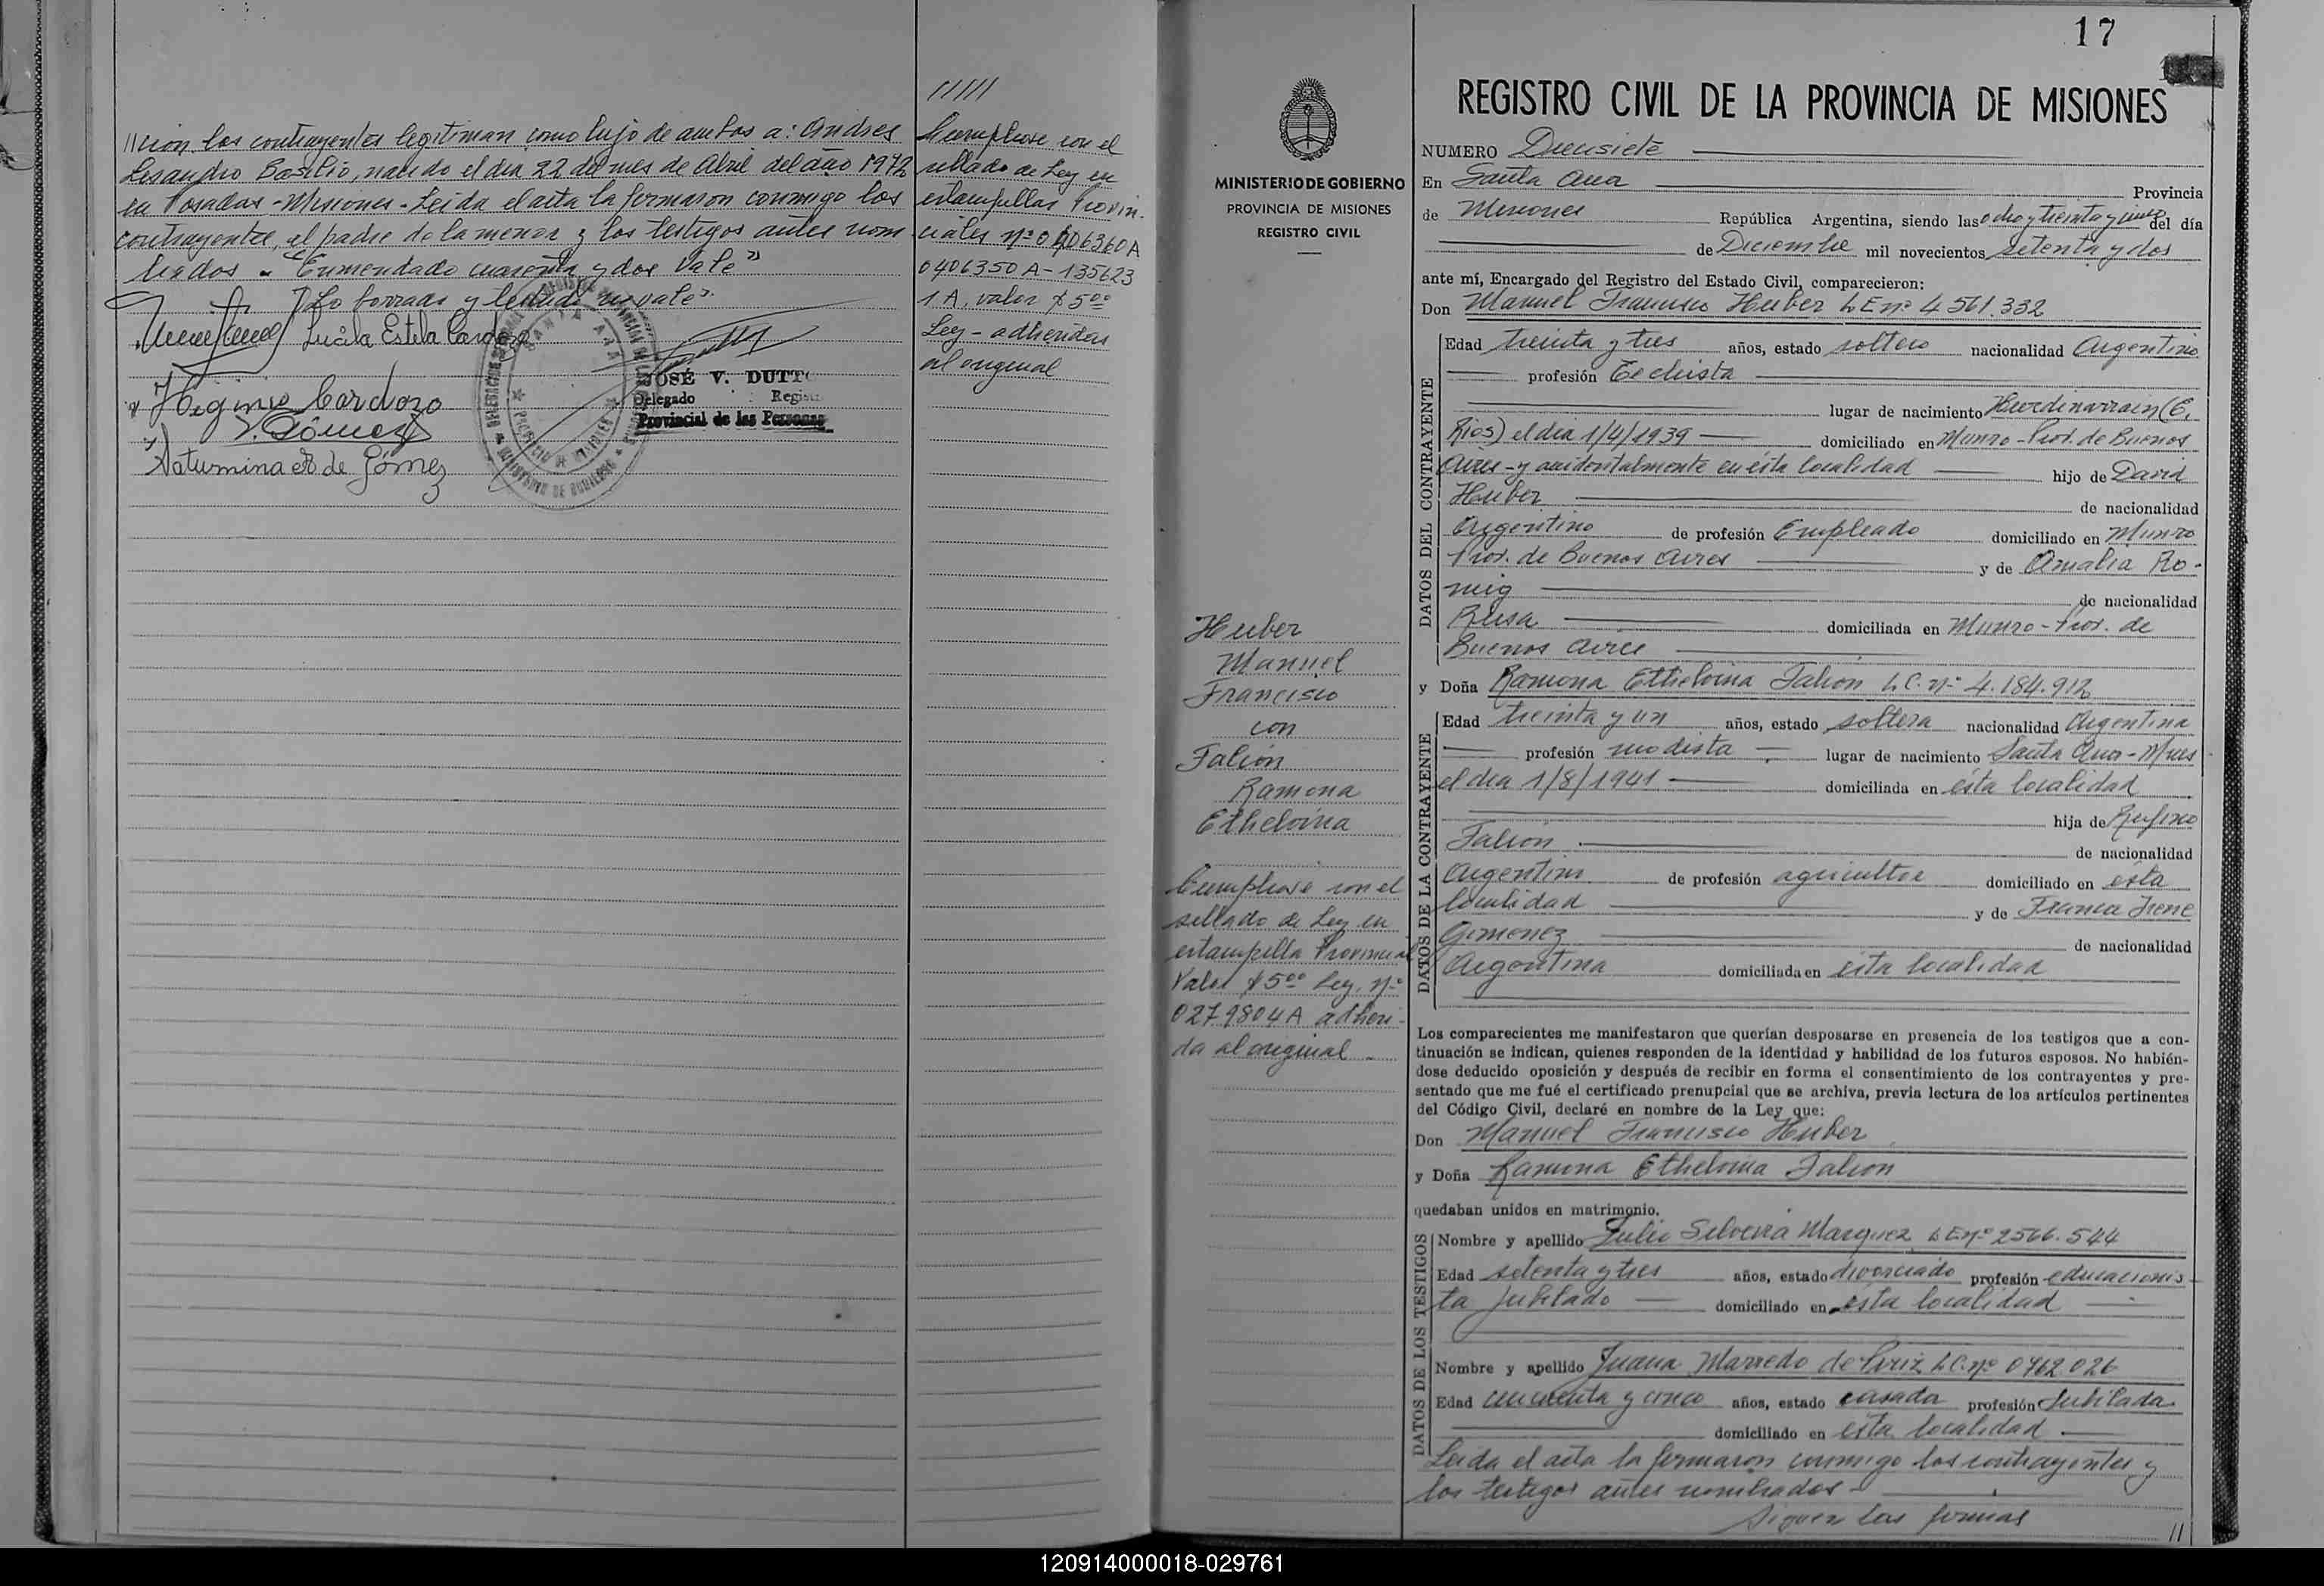 //ción los contrayentes legitiman como hijo de ambos a: Andres
Lisandro Basilio, nacido el día 22 del mes de Abril del año 1972
en Posadas - Misiones - Leída el acta la firmaron conmigo los
contrayentes, el padre de la menor y los testigos antes nom
brados - "Enmendado cuarenta y dos Vale"
Lo borrado y no vale".
Lucila Estela Cardozo
Higinio Cardozo
V. Gómez
Saturnina de Gómez
JOSÉ V. DUTTO
Delegado Regist
Provincial de las Personas
//////
Cumplese con el
sellado de Ley en
estampillas Provin-
ciales nº 0406360A
0406350A - 135623
1 A. valor $ 5oo
Ley - adheridas
al original
17
MINISTERIO DE GOBIERNO
PROVINCIA DE MISIONES
REGISTRO CIVIL
Huber
Manuel
Francisco
con
Falcón
Ramona
Ethelvina
Cumplese con el
sellado de Ley en
estampilla Provincial
Valor $5oo Ley. nº
0279804A adheri-
da al original
REGISTRO CIVIL DE LA PROVINCIA DE MISIONES
NUMERO Diecisiete
En Santa Ana Provincia
de Misiones República Argentina, siendo las ocho y treinta y del día
de Diciembre mil novecientos setenta y dos
ante mí, Encargado del Registro del Estado Civil, comparecieron:
Don Manuel Francisco Huber L E nº 4561.332
DATOS DEL CONTRAYENTE
Edad treinta y tres años, estado soltero nacionalidad Argentino
profesión Techista
lugar de nacimiento Hurdinarrain (E.
Rios) el día 1/4/1939 domiciliado en Munro - Prov. de Buenos
Aires - y accidentalmente en ésta localidad hijo de David
Huber de nacionalidad
Argentino de profesión Empleado domiciliado en Munro
Prov. de Buenos Aires y de Amalia Ro-
mig de nacionalidad
Rusa domiciliada en Munro - Prov. de
Buenos Aires
y Doña Ramona Ethelvina Falcon L C. nº 4.184.912
DATOS DE LA CONTRAYENTE
Edad treinta y un años, estado soltera nacionalidad Argentina
profesión modista lugar de nacimiento Santa Ana - Mnes
el día 1/8/1941 domiciliada en ésta localidad
hija de Rufino
Falcon de nacionalidad
Argentino de profesión agricultor domiciliado en ésta
localidad y de Franca Irene
Gimenez de nacionalidad
Argentina domiciliada en ésta localidad
Los comparecientes me manifestaron que querían desposarse en presencia de los testigos que a con-
tinuación se indican, quienes responden de la identidad y habilidad de los futuros esposos. No habién-
dose deducido oposición y después de recibir en forma el consentimiento de los contrayentes y pre-
sentado que me fué el certificado prenupcial que se archiva, previa lectura de los artículos pertinentes
del Código Civil, declaré en nombre de la Ley que:
Don Manuel Francisco Huber
y Doña Ramona Ethelvina Falcon
quedaban unidos en matrimonio.
DATOS DE LOS TESTIGOS
Nombre y apellido Julio Silveira Marquez L E nº 2566.544
Edad setenta y tres años, estado divorciado profesión educacionis-
ta jubilado domiciliado en esta localidad
Nombre y apellido Juana Marredo de L C. nº 0962.026
Edad cincuenta y cinco años, estado casada profesión Jubilada
domiciliado en ésta localidad
Leída el acta la firmaron conmigo los contrayentes y
los testigos antes nombrados -
Siguen las firmas //
120914000018-029761